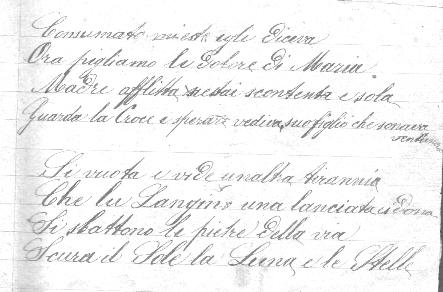 Consumato est egli diceva
Ora pigliamo le dolore di Maria
Madre afflitta ne stai scontenta e sola
Guarda la Croce e vediva suo figlio che sonava
Si vuota e vide unalta tirannia
Che lu Langino una lanciata dona
Si sbattono le pietre della via
Scura il Sole la Luna e le Stelle